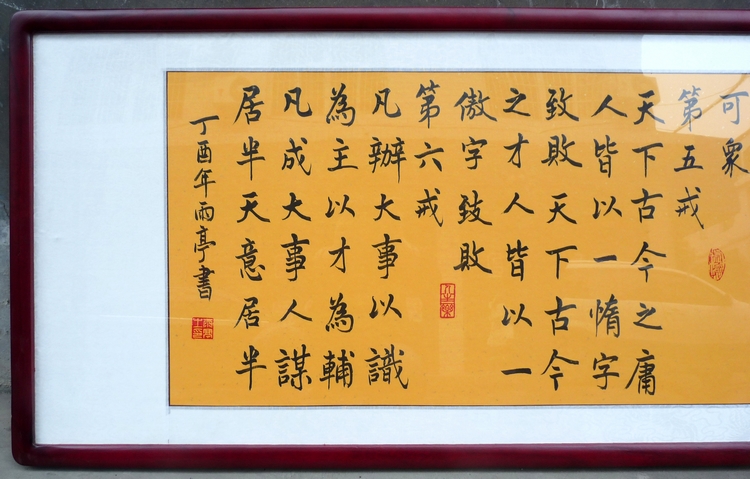 可衆
第五戒
天下古今之庸
人皆以一惰字
致敗天下古今
之才人皆以一
傲字致敗
第六戒
凡辦大事以識
為主以才為輔
凡成大事人謀
居半天意居半
丁酉年雨亭書